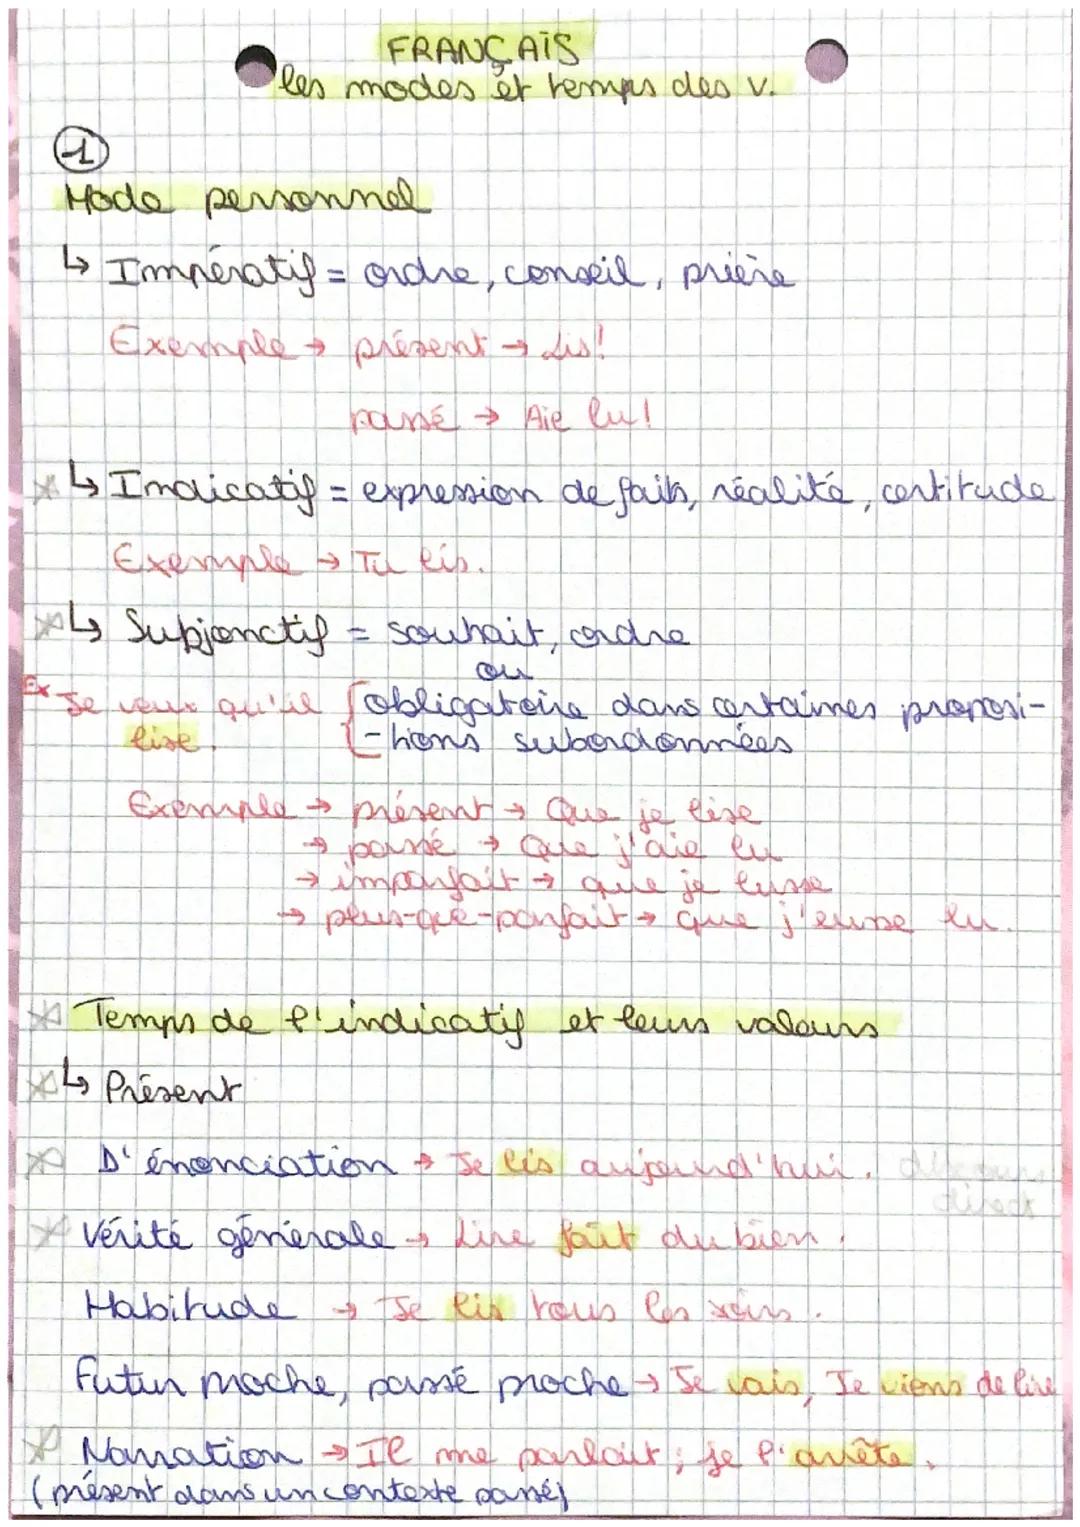 FRANÇAIS
les modes et temps des v.
1
Mode personnel
↳ Impératif = ordre, conseil, prière
Exemple → présent → Lis!
passé → Aie lu!
↳ Indicatif = expression de faits, réalité, certitude
Exemple → Tu lis.
↳ Subjonctif = souhait, ordre
ou
Ex Je veux qu'il { obligatoire dans certaines proposi-
lise. -tions subordonnées
Exemple → présent → Que je lise
→ passé → Que j'aie lu
→ imparfait → que je lusse
→ plus-que-parfait → que j'eusse lu.
Temps de l'indicatif et leurs valeurs
↳ Présent
D'énonciation → Je lis aujourd'hui. discours
direct
Vérité générale → Lire fait du bien.
Habitude → Je lis tous les soirs.
Futur proche, passé proche → Je vais, Je viens de lire
Narration → Il me parlait; je l'arrête.
(présent dans un contexte passé)